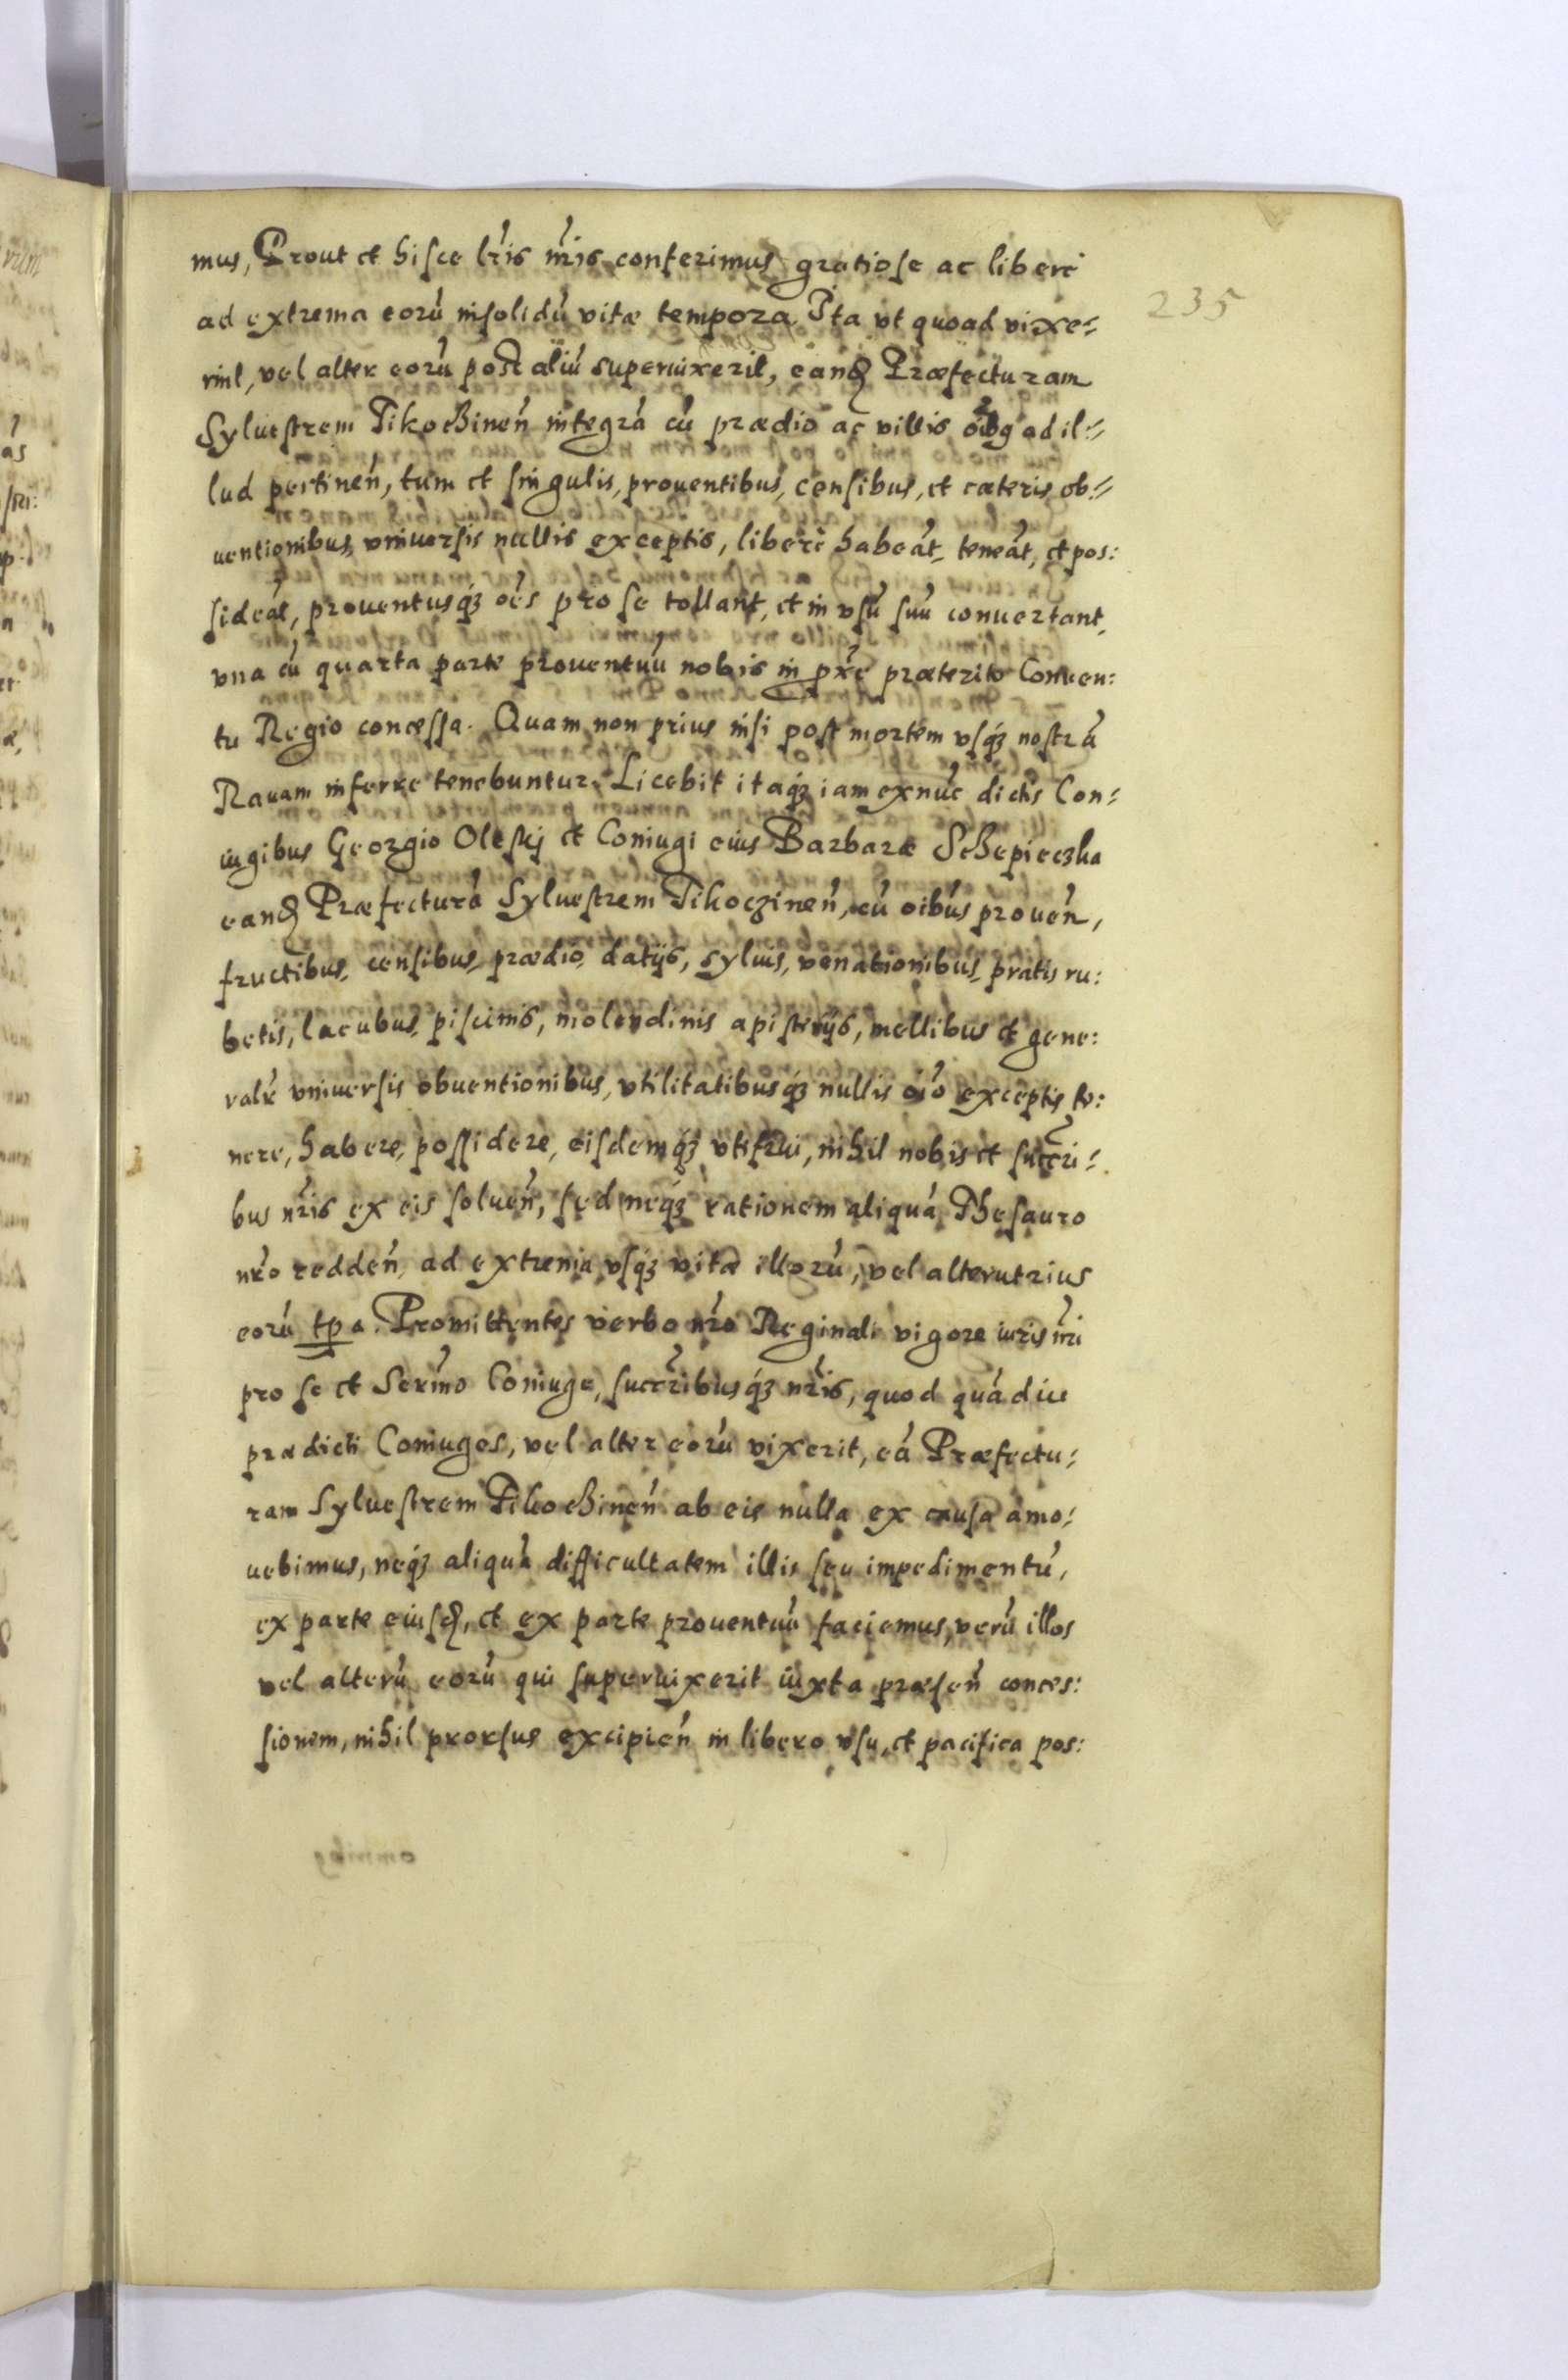 mus, Prout et hisce lr̃is nr̃is conferimus gratiose ac liberè
235
ad extrema eorũ insolidũ vitæ tempora Ita vt quoad vixe⸗
rint, vel alter eorũ post aliũ superuixerit, eandẽ Præfecturam
Syluestrem Tikochinen̄ integrã cũ prædio ac villis oĩbꝫ ad il⸗
lud pertinen̄, tum et singulis, prouentibus, censibus, et cæteris ob⸗
uentionibus, vniuersis nullis exceptis, liberè habeãt, teneãt, et pos:
sideãt, prouentusqꝫ oẽs pro se tollant, et in vsũ suũ conuertant,
vna cũ quarta parte prouentuũ nobis in præterito Conuen:
tu Regio concessa. Quam non prius nisi post mortem vsqꝫ nostrã
Rauam inferre tenebuntur. Licebit itaqꝫ iam exnũc dictis Con⸗
iugibus Georgio Olesky et Coniugi eius Barbaræ Schepieczka
eandẽ Præfecturã Syluestrem Tikoczinen̄, cũ oĩbus prouen̄,
fructibus, censibus, prædio, datijs, syluis, venationibus, pratis ru:
betis, lacubus, piscinis, molendinis apisterijs, mellibus et gene:
ralr̃ vniuersis obuentionibus, vtilitatibusqꝫ nullis oĩo exceptis te:
nere, habere, possidere, eisdemqꝫ vtifrui, nihil nobis et succr̃i⸗
bus nr̃is ex eis soluen̄, sed neqꝫ rationem aliquã Thesauro
nr̃o redden̄, ad extrema vsqꝫ vitæ illorũ, vel alterutrius
eorũ tp̄a. Promittentes verbo nr̃o Reginali vigore iuris nr̃i
pro se et Serm̃o Coniuge, succr̃ibusqꝫ nr̃is, quod quãdiu
prædicti Coniuges, vel alter eorũ vixerit, eã Præfectu⸗
ram Syluestrem Tikochinen̄ ab eis nulla ex causa amo⸗
uebimus, neqꝫ aliquã difficultatem illis seu impedimentũ,
ex parte eiusdẽ, et ex parte prouentuũ faciemus, verũ illos
vel alterũ eorũ qui superuixerit iuxta præsen̄ conces:
sionem, nihil prorsus excipien̄ in libero vsu, et pacifica pos: